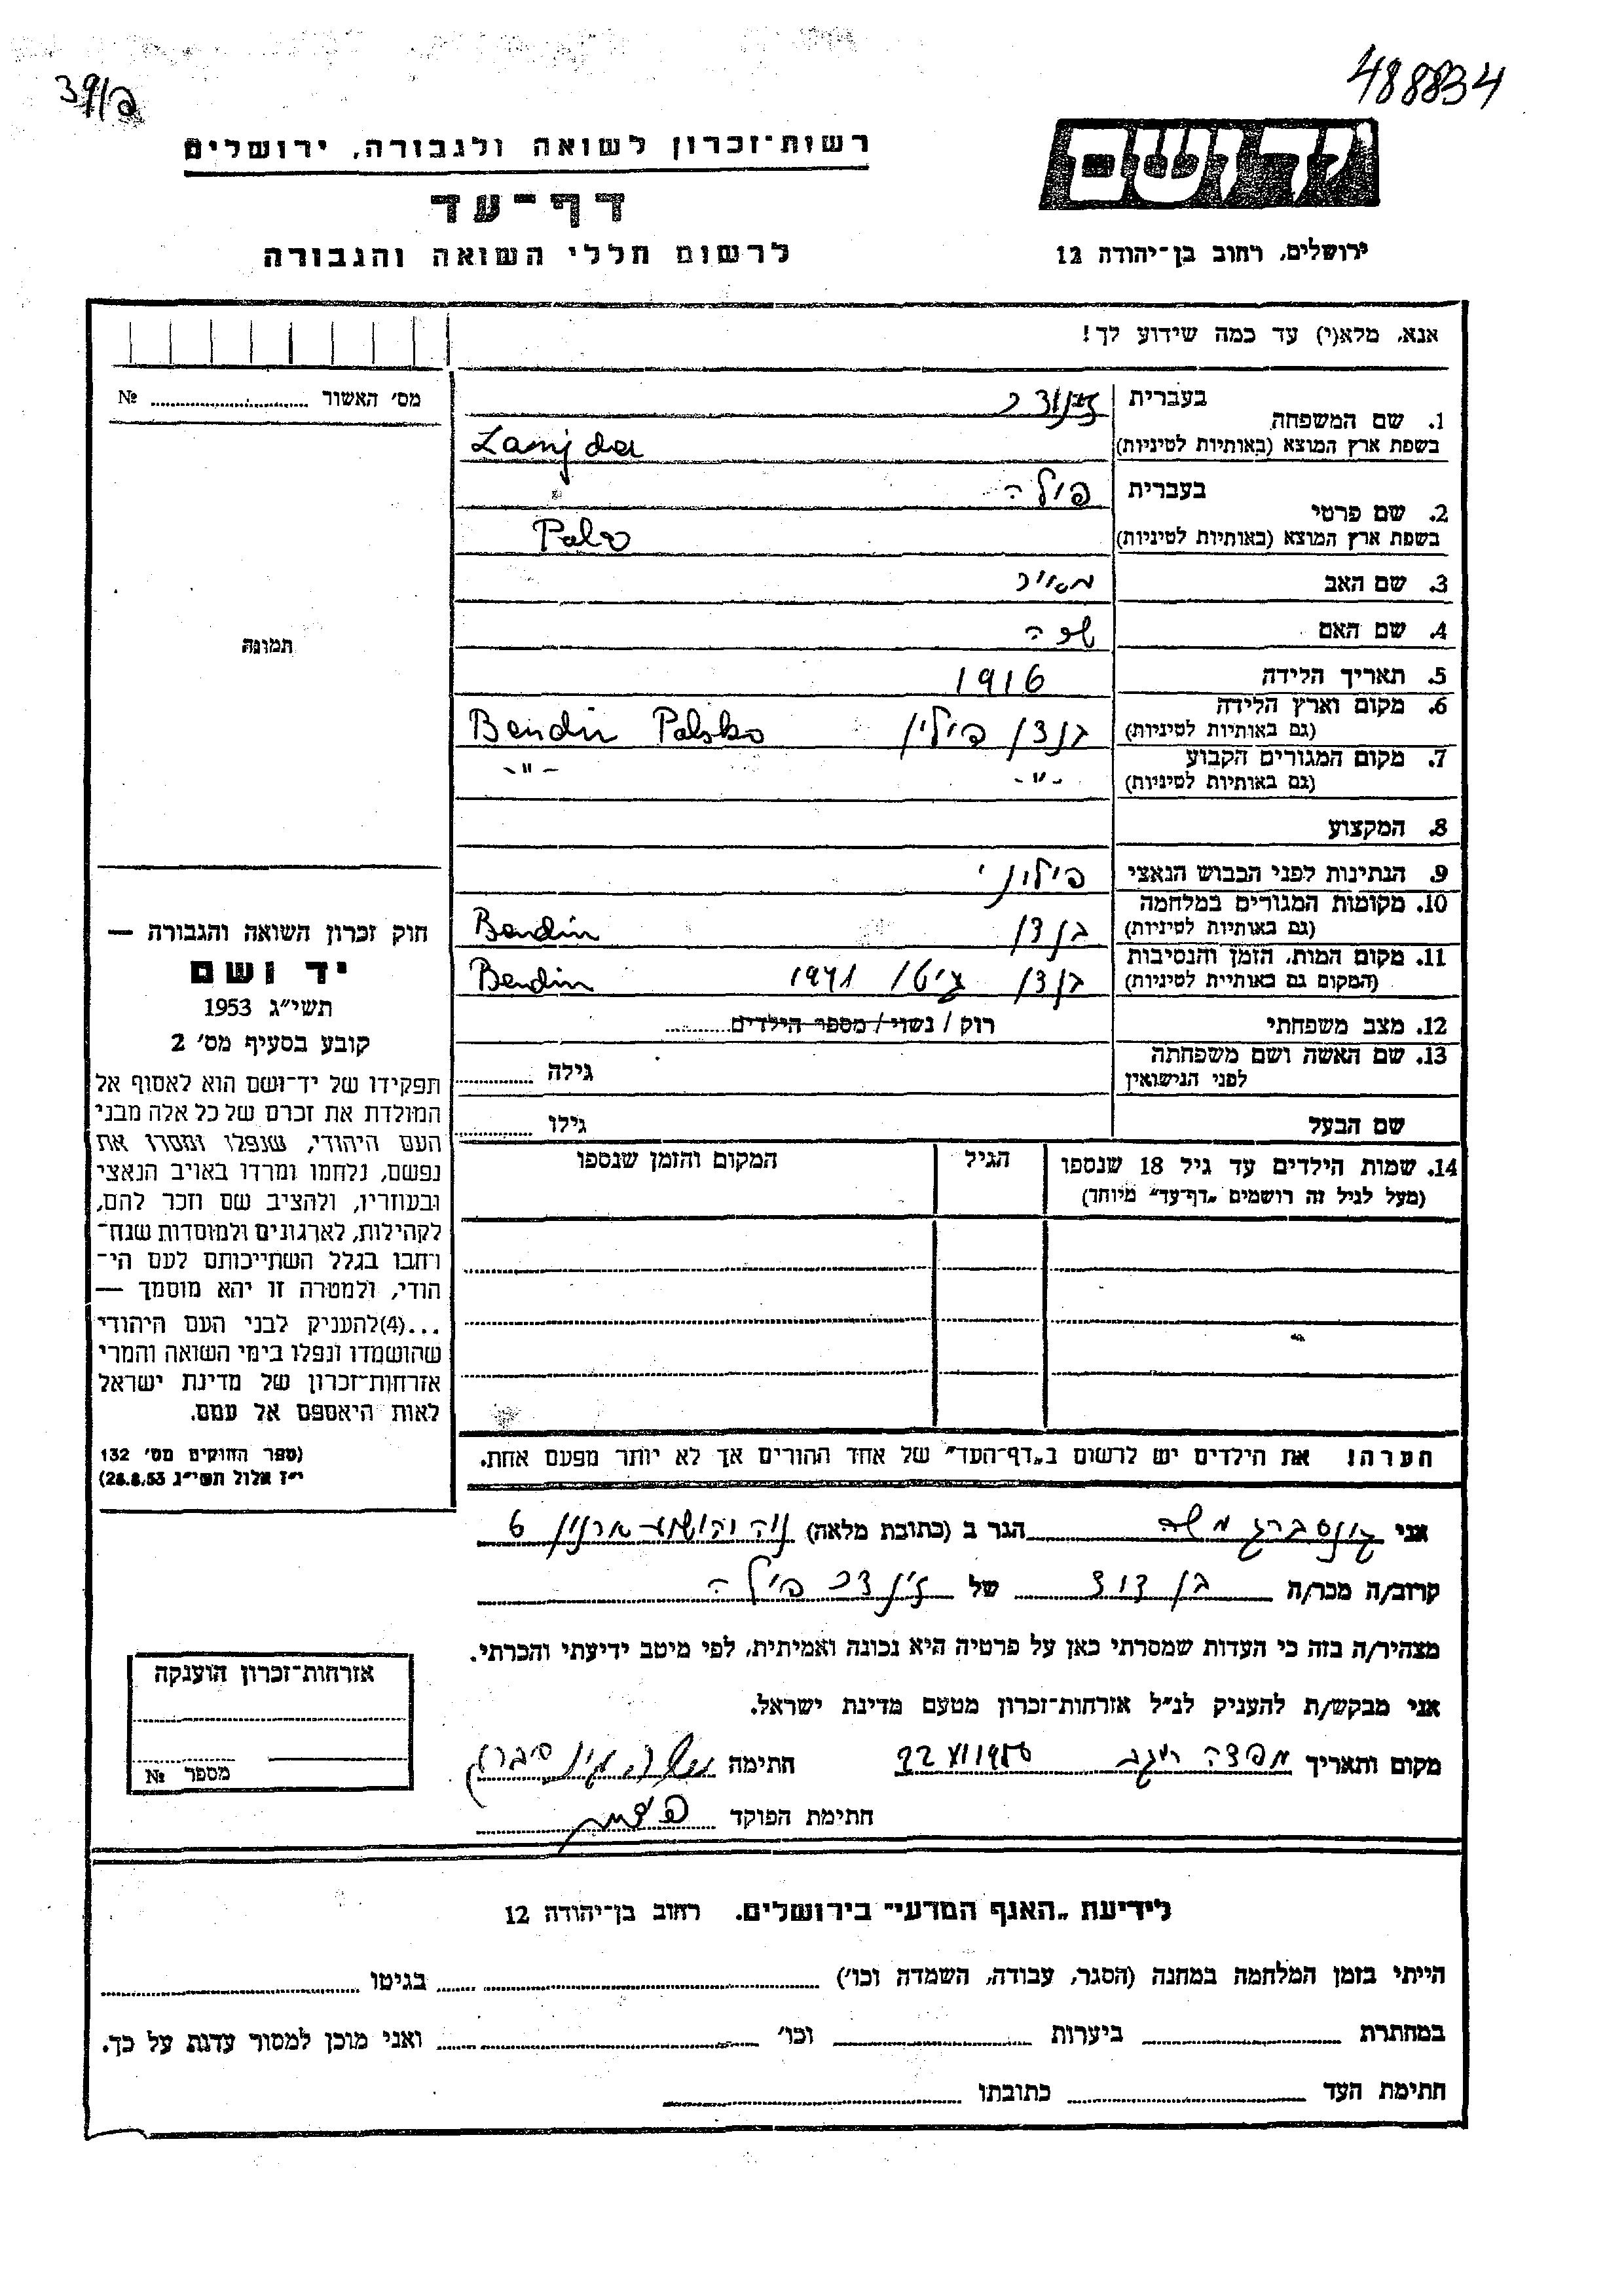 488834
רשות־זכרון לשואה ולגבורה, ירושלים
יד ושם
דף־עד
לרשום חללי השואה והגבורה
ירושלים, רחוב בן־יהודה 12
אנא, מלא(י) עד כמה שידוע לך!
מס׳ האשור № ....................
1. שם המשפחה
בעברית
בשפת ארץ המוצא (באותיות לטיניות)
2. שם פרטי
בעברית פולה
בשפת ארץ המוצא (באותיות לטיניות)
3. שם האב מאיר
4. שם האם שרה
5. תאריך הלידה 1916
6. מקום וארץ הלידה (גם באותיות לטיניות) בנדין פולין Bendin Polsko
7. מקום המגורים הקבוע (גם באותיות לטיניות) -״- -״-
8. המקצוע
9. הנתינות לפני הכבוש הנאצי פולוני
10. מקומות המגורים במלחמה (גם באותיות לטיניות) בנדין Bendin
11. מקום המות, הזמן והנסיבות (המקום גם באותיית לטיניות) בנדין גיטו 1941 Bendin
12. מצב משפחתי רוק / נשוי / מספר הילדים..........
13. שם האשה ושם משפחתה לפני הנישואין גילה ............
שם הבעל גילו ............
14. שמות הילדים עד גיל 18 שנספו (מעל לגיל זה רושמים „דף־עד״ מיוחד)
הגיל
המקום והזמן שנספו
תמונה
חוק זכרון השואה והגבורה —
יד ושם
תשי״ג 1953
קובע בסעיף מס׳ 2
תפקידו של יד־ושם הוא לאסוף אל
המולדת את זכרם של כל אלה מבני
העם היהודי, שנפלו ומסרו את
נפשם, נלחמו ומרדו באויב הנאצי
ובעוזריו, ולהציב שם וזכר להם,
לקהילות, לארגונים ולמוסדות שנח־
רחבו בגלל השתייכותם לעם הי־
הודי, ולמטרה זו יהא מוסמך —
...(4)להעניק לבני העם היהודי
שהושמדו ונפלו בימי השואה והמרי
אזרחות־זכרון של מדינת ישראל
לאות היאספם אל עמם.
(ספר החוקים מס׳ 132
י״ז אלול תשי״ג 28.8.53)
הערה! את הילדים יש לרשום ב„דף־העד״ של אחד ההורים אך לא יותר מפעם אחת.
אני גינסברג משה הגר ב (כתובת מלאה) נוה יהושע 6
קרוב/ה מכר/ה בן דוד של פולה
מצהיר/ה בזה כי העדות שמסרתי כאן על פרטיה היא נכונה ואמיתית, לפי מיטב ידיעתי והכרתי.
אני מבקש/ת להעניק לנ״ל אזרחות־זכרון מטעם מדינת ישראל.
מקום ותאריך חתימה
חתימת הפוקד
אזרחות־זכרון הוענקה
מספר №
לידיעת „האגף המדעי״ בירושלים. רחוב בן־יהודה 12
הייתי בזמן המלחמה במחנה (הסגר, עבודה, השמדה וכו׳) .................... בגיטו ....................
במחתרת .................... ביערות .................... וכו׳ .................... ואני מוכן למסור עדות על כך.
חתימת העד .................... כתובתו ....................